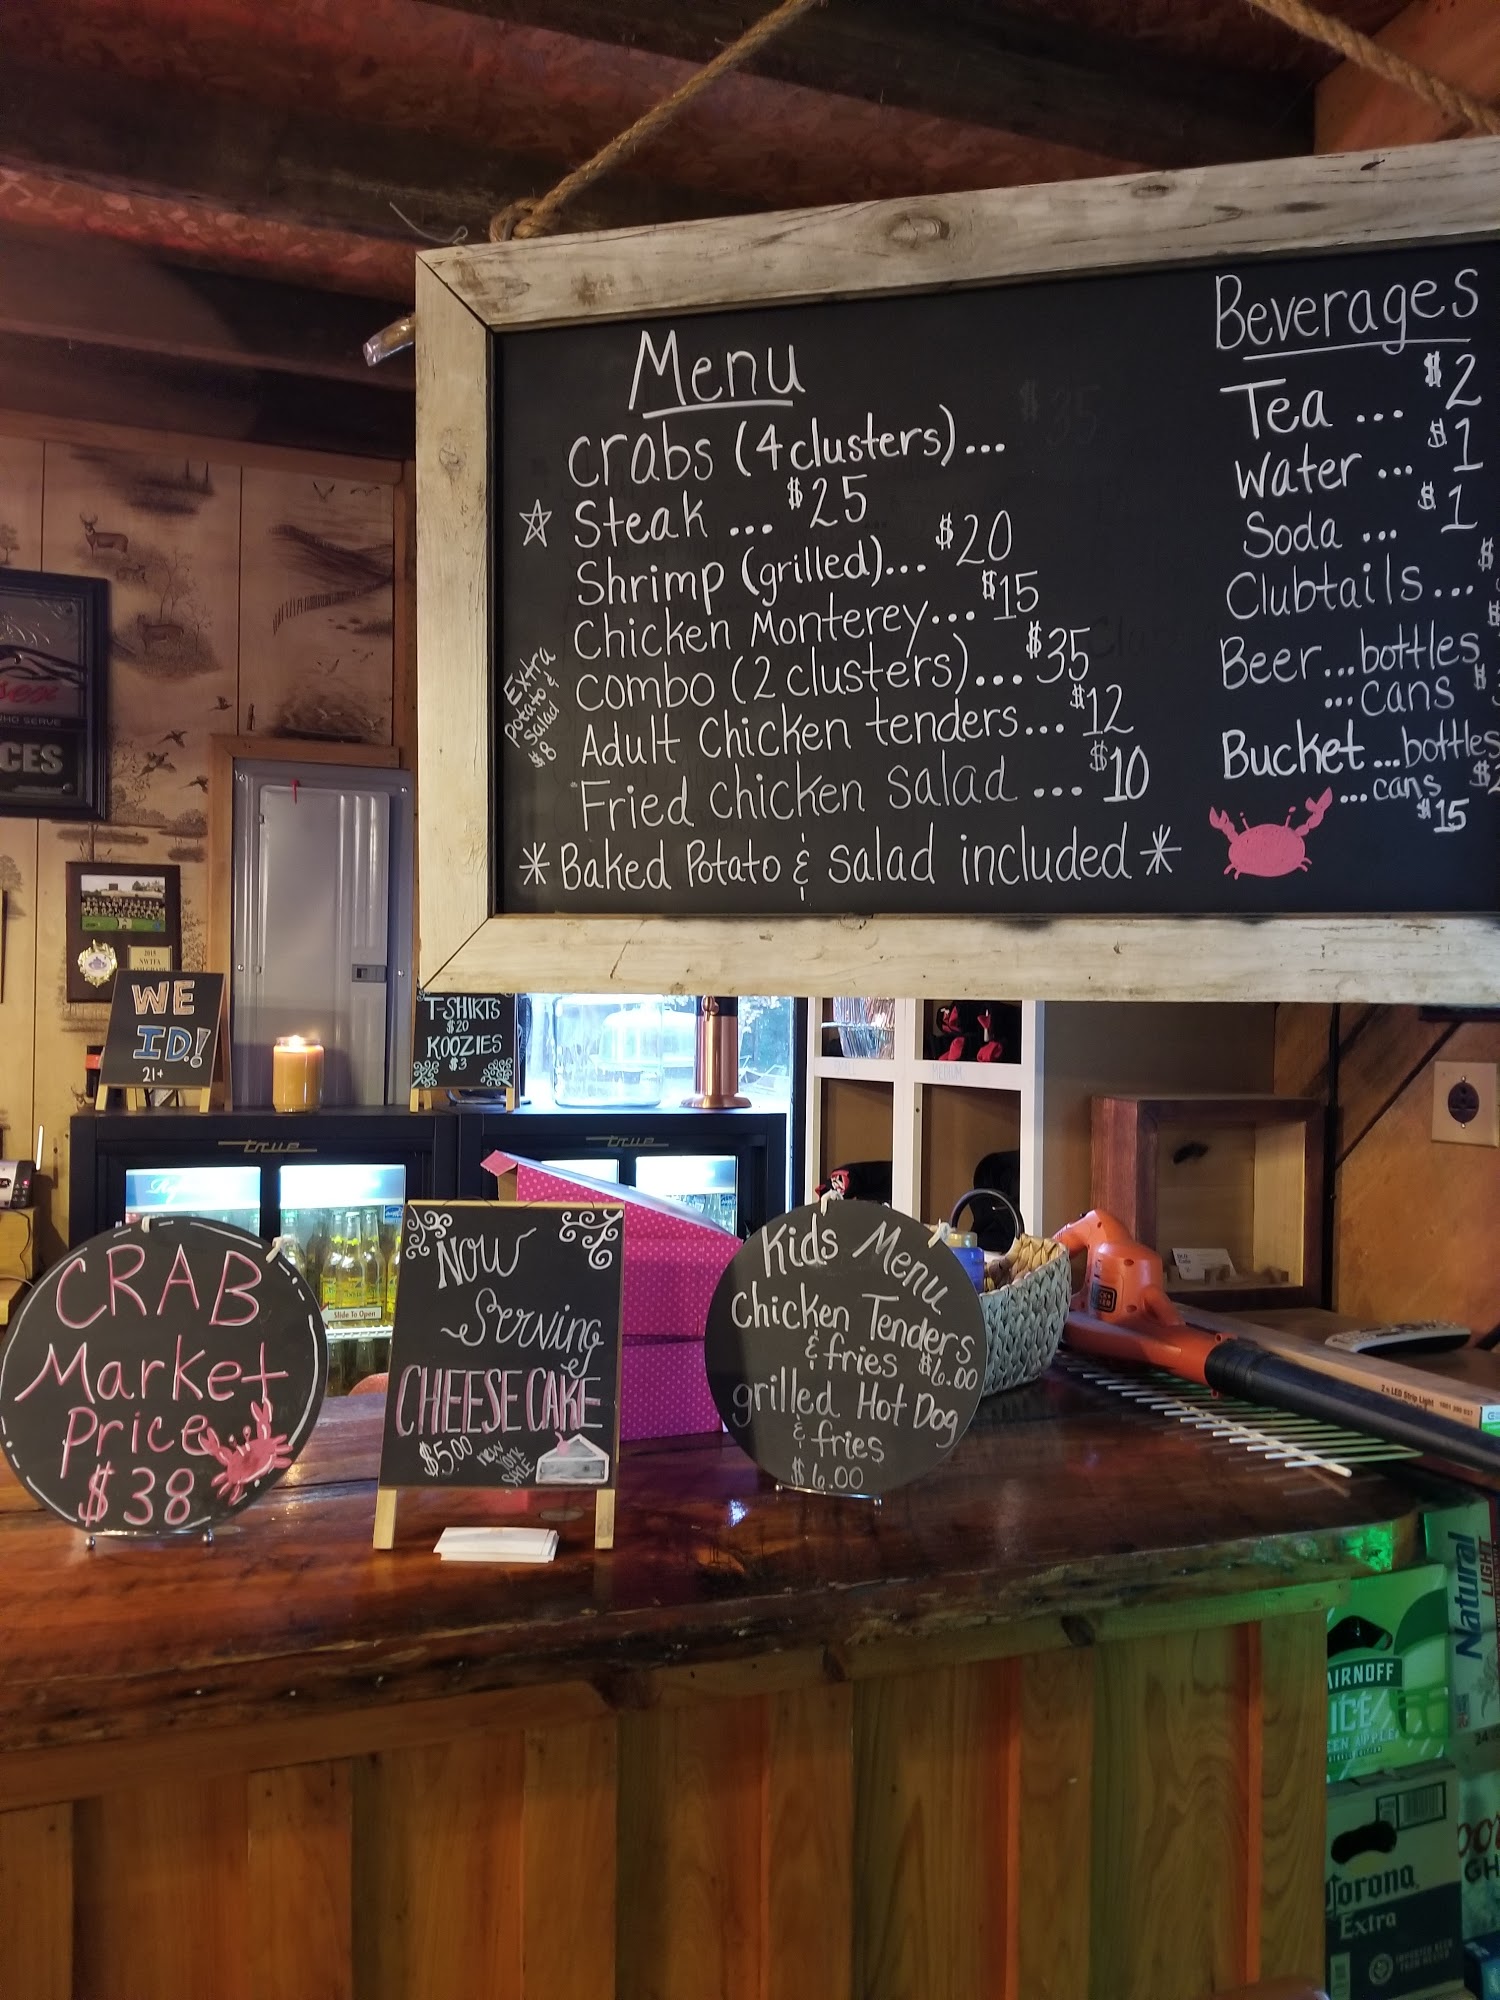 Menu
Crabs (4 clusters)... $35
Steak ... $25
Shrimp (grilled)... $20
Chicken Monterey... $15
Combo (2 clusters)... $35
Adult Chicken tenders... $12
Fried Chicken Salad ... $10
*Baked Potato & Salad included*
Extra
potato &
Salad
$8
Beverages
Tea ... $2
Water ... $1
Soda ... $1
Clubtails... $
Beer...bottles $
...cans $
Bucket...bottles
...cans
$15
CES
2015
WE
ID!
21+
T-SHIRTS
$20
KOOZIES
$3
SMALL
MEDIUM
true
true
Slide To Open
CRAB
Market
Price
$38
Now
Serving
CHEESECAKE
$5.00
new
York
Kids Menu
Chicken Tenders
& fries $6.00
grilled Hot Dog
& fries
$6.00
LED Strip Light
Natural
LIGHT
SMIRNOFF
ICE
Corona
Extra